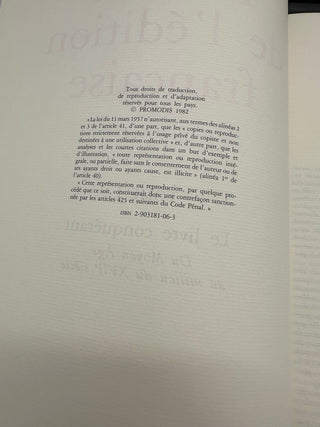 Tous droits de traduction,
de reproduction et d'adaptation
réservés pour tous les pays.
© PROMODIS 1982
« La loi du 11 mars 1957 n'autorisant, aux termes des alinéas 2
et 3 de l'article 41, d'une part, que les « copies ou reproduc-
tions strictement réservées à l'usage privé du copiste et non
destinées à une utilisation collective » et, d'autre part, que les
analyses et les courtes citations dans un but d'exemple et
d'illustration, « toute représentation ou reproduction inté-
grale, ou partielle, faite sans le consentement de l'auteur ou de
ses ayants droit ou ayants cause, est illicite » (alinéa 1er de
l'article 40).
« Cette représentation ou reproduction, par quelque pro-
cédé que ce soit, constituerait donc une contrefaçon sanction-
née par les articles 425 et suivants du Code Pénal. »
ISBN 2-903181-06-3
de l'édition
française
Le livre conquérant
Du Moyen Age
au milieu du XVIIe siècle